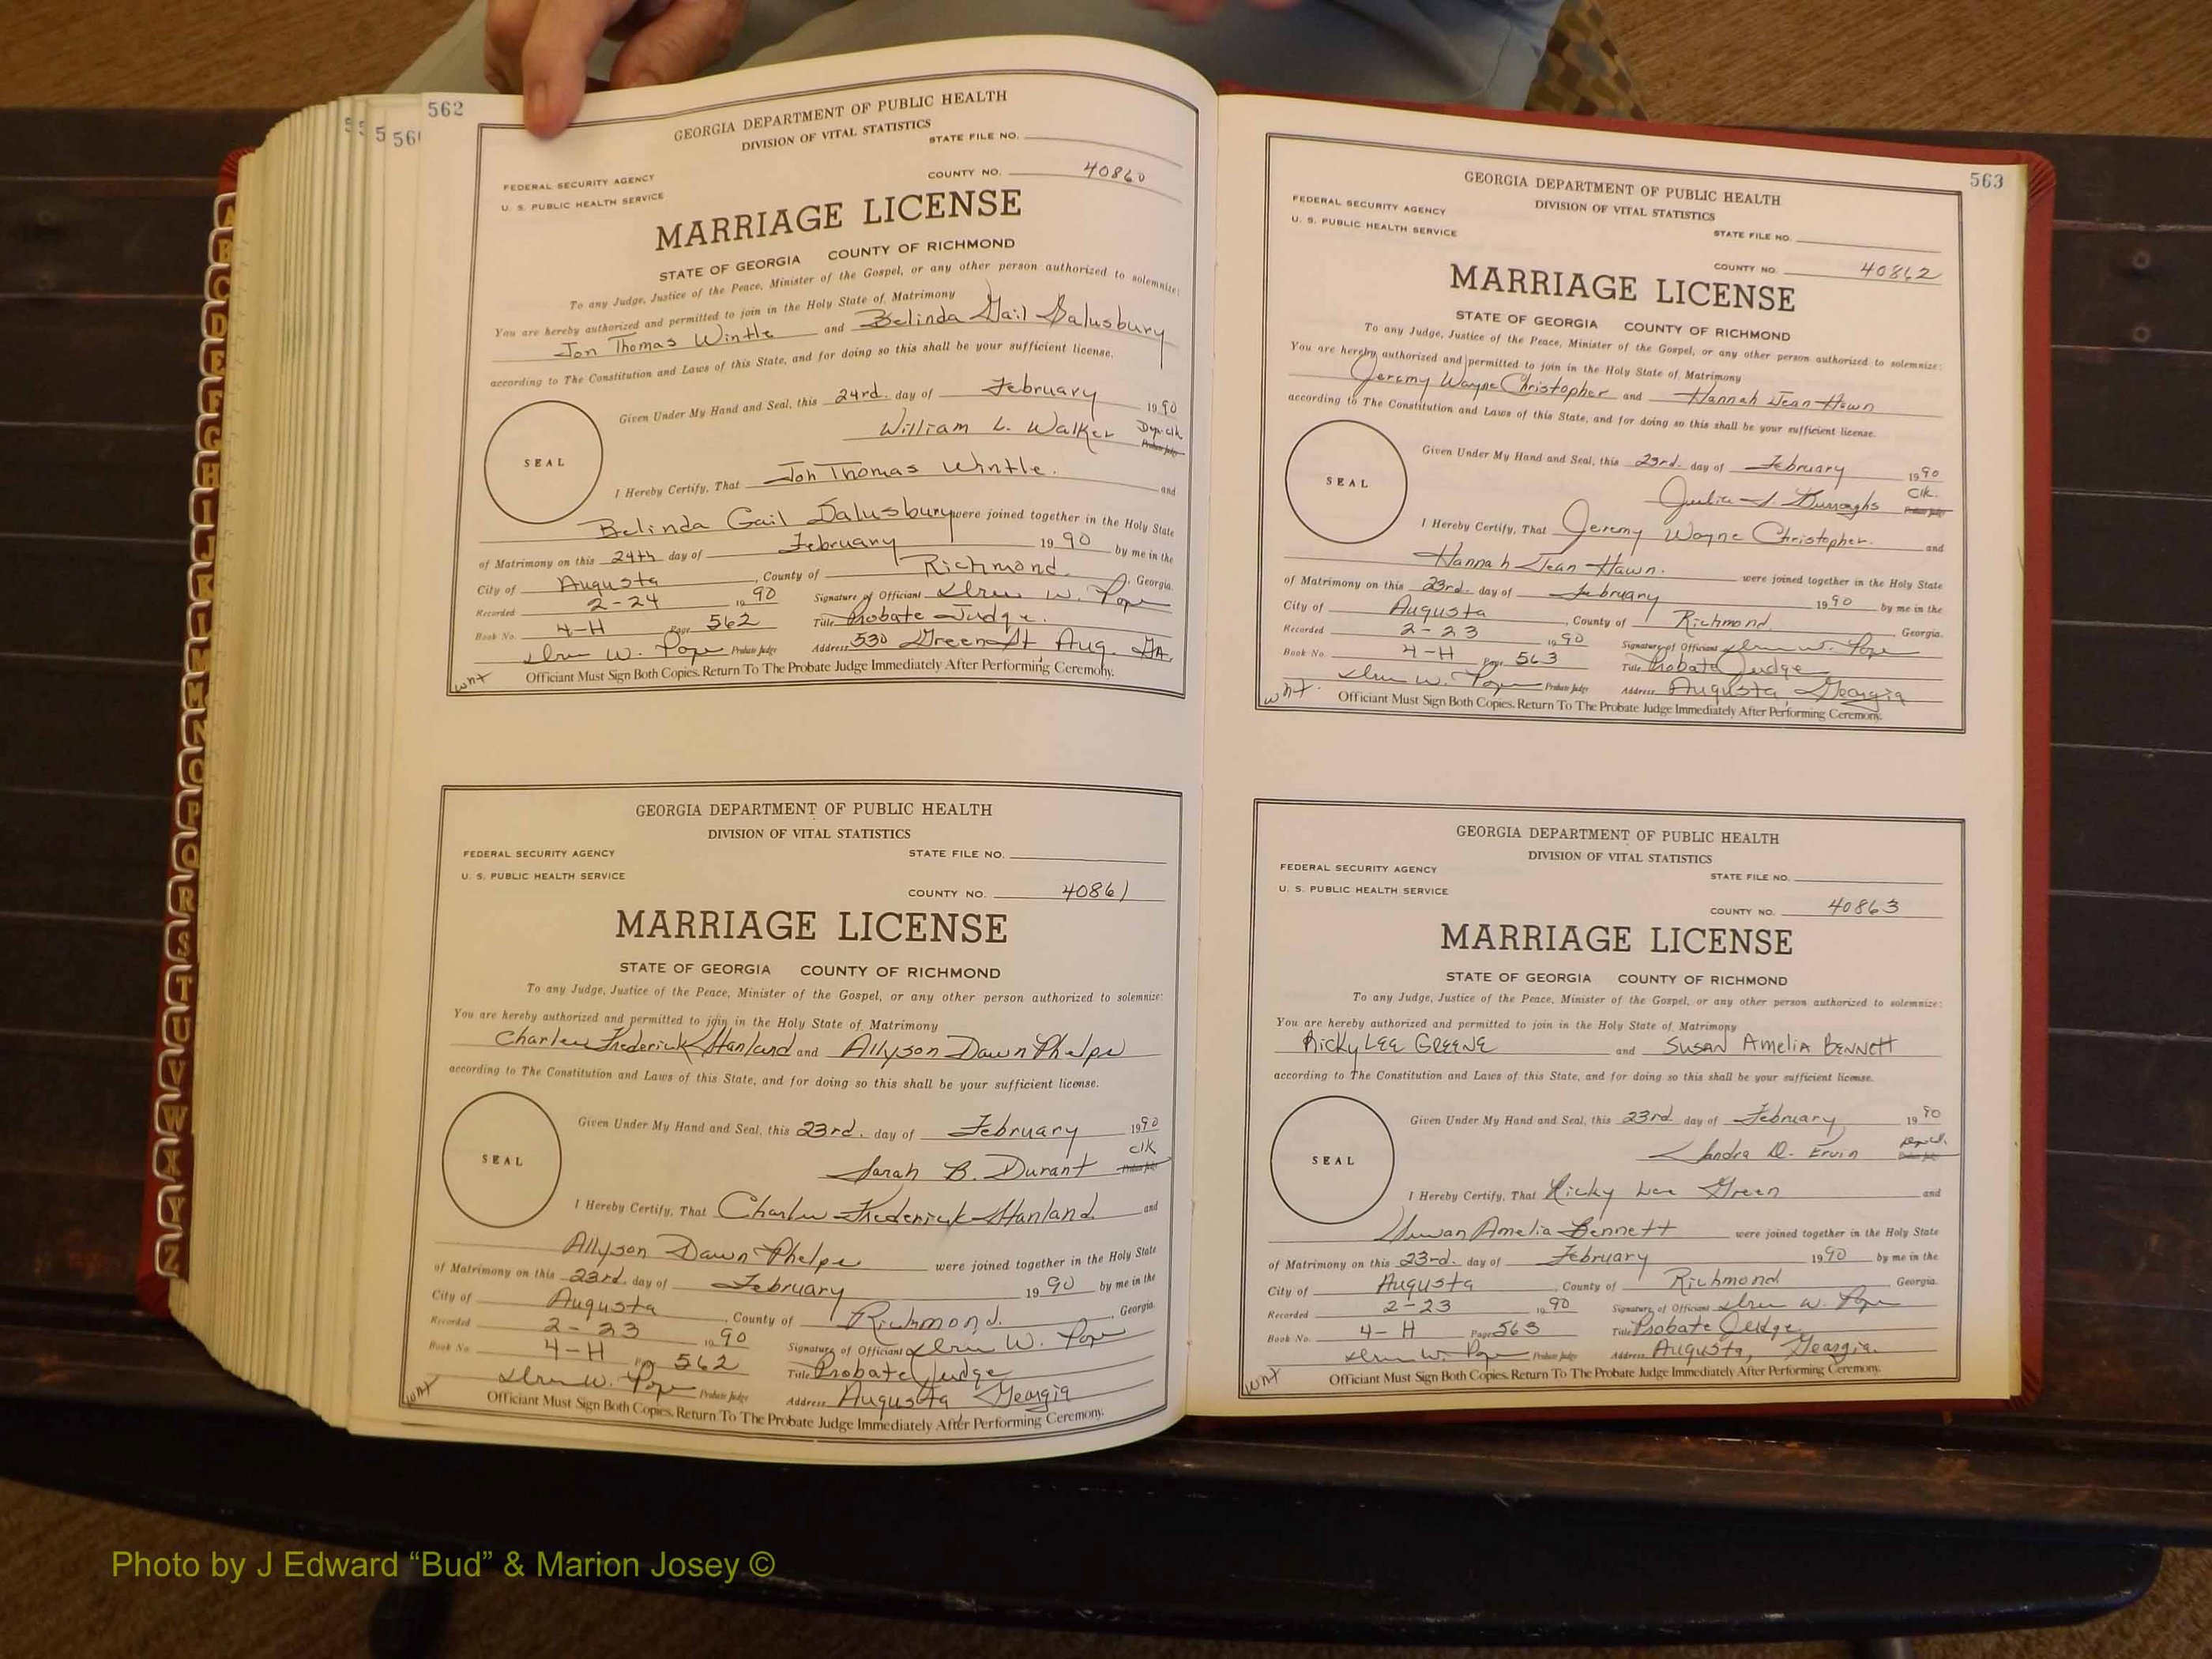 562
GEORGIA DEPARTMENT OF PUBLIC HEALTH
DIVISION OF VITAL STATISTICS
STATE FILE NO.
FEDERAL SECURITY AGENCY
U. S. PUBLIC HEALTH SERVICE
COUNTY NO. 40860
MARRIAGE LICENSE
STATE OF GEORGIA COUNTY OF RICHMOND
To any Judge, Justice of the Peace, Minister of the Gospel, or any other person authorized to solemnize:
You are hereby authorized and permitted to join in the Holy State of Matrimony
Jon Thomas Wintle and Belinda Gail Salusbury
according to The Constitution and Laws of this State, and for doing so this shall be your sufficient license.
Given Under My Hand and Seal, this 24rd. day of February 1990
William L. Walker Dep. clk
SEAL
I Hereby Certify, That Jon Thomas Wintle. and
Belinda Gail Salusbury were joined together in the Holy State
of Matrimony on this 24th day of February 1990 by me in the
City of Augusta, County of Richmond, Georgia.
Recorded 2-24 1990 Signature of Officiant W. Pope
Book No. 4-H Page 562 Title Probate Judge.
W. Pope Probate Judge Address 530 Greene St. Aug. GA.
wnt Officiant Must Sign Both Copies. Return To The Probate Judge Immediately After Performing Ceremony.
GEORGIA DEPARTMENT OF PUBLIC HEALTH
DIVISION OF VITAL STATISTICS
FEDERAL SECURITY AGENCY STATE FILE NO.
U. S. PUBLIC HEALTH SERVICE
COUNTY NO. 40861
MARRIAGE LICENSE
STATE OF GEORGIA COUNTY OF RICHMOND
To any Judge, Justice of the Peace, Minister of the Gospel, or any other person authorized to solemnize:
You are hereby authorized and permitted to join in the Holy State of Matrimony
Charles Frederick Stanland and Allyson Dawn Phelps
according to The Constitution and Laws of this State, and for doing so this shall be your sufficient license.
Given Under My Hand and Seal, this 23rd. day of February 1990
Sarah B. Durant Clk
SEAL
I Hereby Certify, That Charles Frederick Stanland and
Allyson Dawn Phelps were joined together in the Holy State
of Matrimony on this 23rd. day of February 1990 by me in the
City of Augusta, County of Richmond, Georgia.
Recorded 2-23 1990 Signature of Officiant W. Pope
Book No. 4-H Page 562 Title Probate Judge
W. Pope Probate Judge Address Augusta Georgia
wnt Officiant Must Sign Both Copies. Return To The Probate Judge Immediately After Performing Ceremony.
563
GEORGIA DEPARTMENT OF PUBLIC HEALTH
DIVISION OF VITAL STATISTICS
FEDERAL SECURITY AGENCY
U. S. PUBLIC HEALTH SERVICE
STATE FILE NO.
COUNTY NO. 40862
MARRIAGE LICENSE
STATE OF GEORGIA COUNTY OF RICHMOND
To any Judge, Justice of the Peace, Minister of the Gospel, or any other person authorized to solemnize:
You are hereby authorized and permitted to join in the Holy State of Matrimony
Jeremy Wayne Christopher and Hannah Jean Hawn
according to The Constitution and Laws of this State, and for doing so this shall be your sufficient license.
Given Under My Hand and Seal, this 23rd. day of February 1990
Julia J. Burroughs Clk.
SEAL
I Hereby Certify, That Jeremy Wayne Christopher. and
Hannah Jean Hawn. were joined together in the Holy State
of Matrimony on this 23rd. day of February 1990 by me in the
City of Augusta, County of Richmond, Georgia.
Recorded 2-23 1990 Signature of Officiant W. Pope
Book No. 4-H Page 563 Title Probate Judge
W. Pope Probate Judge Address Augusta, Georgia
wnt. Officiant Must Sign Both Copies. Return To The Probate Judge Immediately After Performing Ceremony.
GEORGIA DEPARTMENT OF PUBLIC HEALTH
DIVISION OF VITAL STATISTICS
FEDERAL SECURITY AGENCY
STATE FILE NO.
U. S. PUBLIC HEALTH SERVICE
COUNTY NO. 40863
MARRIAGE LICENSE
STATE OF GEORGIA COUNTY OF RICHMOND
To any Judge, Justice of the Peace, Minister of the Gospel, or any other person authorized to solemnize:
You are hereby authorized and permitted to join in the Holy State of Matrimony
Ricky LEE GREENE and SUSAN AMELIA BENNETT
according to The Constitution and Laws of this State, and for doing so this shall be your sufficient license.
Given Under My Hand and Seal, this 23rd. day of February 1990
Sandra D. Ervin
SEAL
I Hereby Certify, That Ricky Lee Green and
Susan Amelia Bennett were joined together in the Holy State
of Matrimony on this 23rd. day of February 1990 by me in the
City of Augusta, County of Richmond Georgia.
Recorded 2-23 1990 Signature of Officiant W. Pope
Book No. 4-H Page 563 Title Probate Judge.
W. Pope Probate Judge Address Augusta, Georgia.
wnt Officiant Must Sign Both Copies. Return To The Probate Judge Immediately After Performing Ceremony.
A
B
C
D
E
F
G
H
I
J
K
L
M
N
O
P
Q
R
S
T
U
V
W
X
Y
Z
Photo by J Edward “Bud” & Marion Josey ©